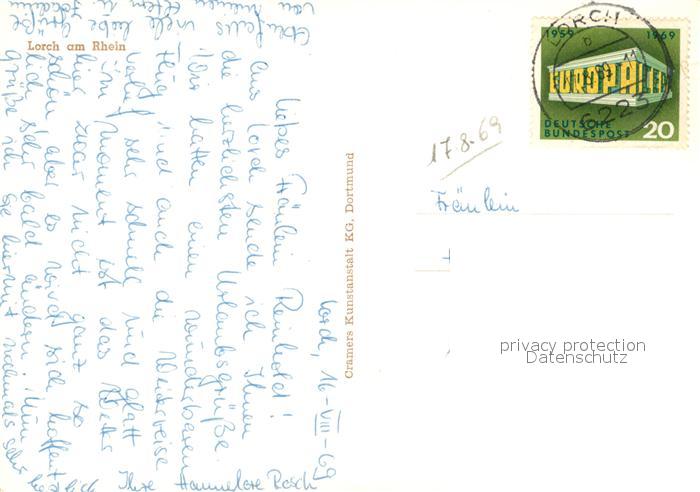 Lorch am Rhein
Lorch, 16-VIII-69
Liebes Fräulein Reinhold!
Aus Lorch sende ich Ihnen
die herzlichsten Urlaubsgrüße
Wir hatten einen wunderbaren
Flug und auch die Weiterreise
verlief sehr schnell und glatt
Im Moment ist das Wetter
hier zwar nicht ganz so
schön aber es wird sich hoffent
lich sehr bald ändern! Nun
grüße ich Sie hiermit nochmals sehr
herzlich Ihre Hannelore Pasch
Ebenfalls viele liebe Grüße
von meinen Eltern u.
Cramers Kunstanstalt KG, Dortmund
LORCH
b
6223
1959 1969
EUROPA CEPT
DEUTSCHE
BUNDESPOST 20
17.8.69
Fräulein
privacy protection
Datenschutz